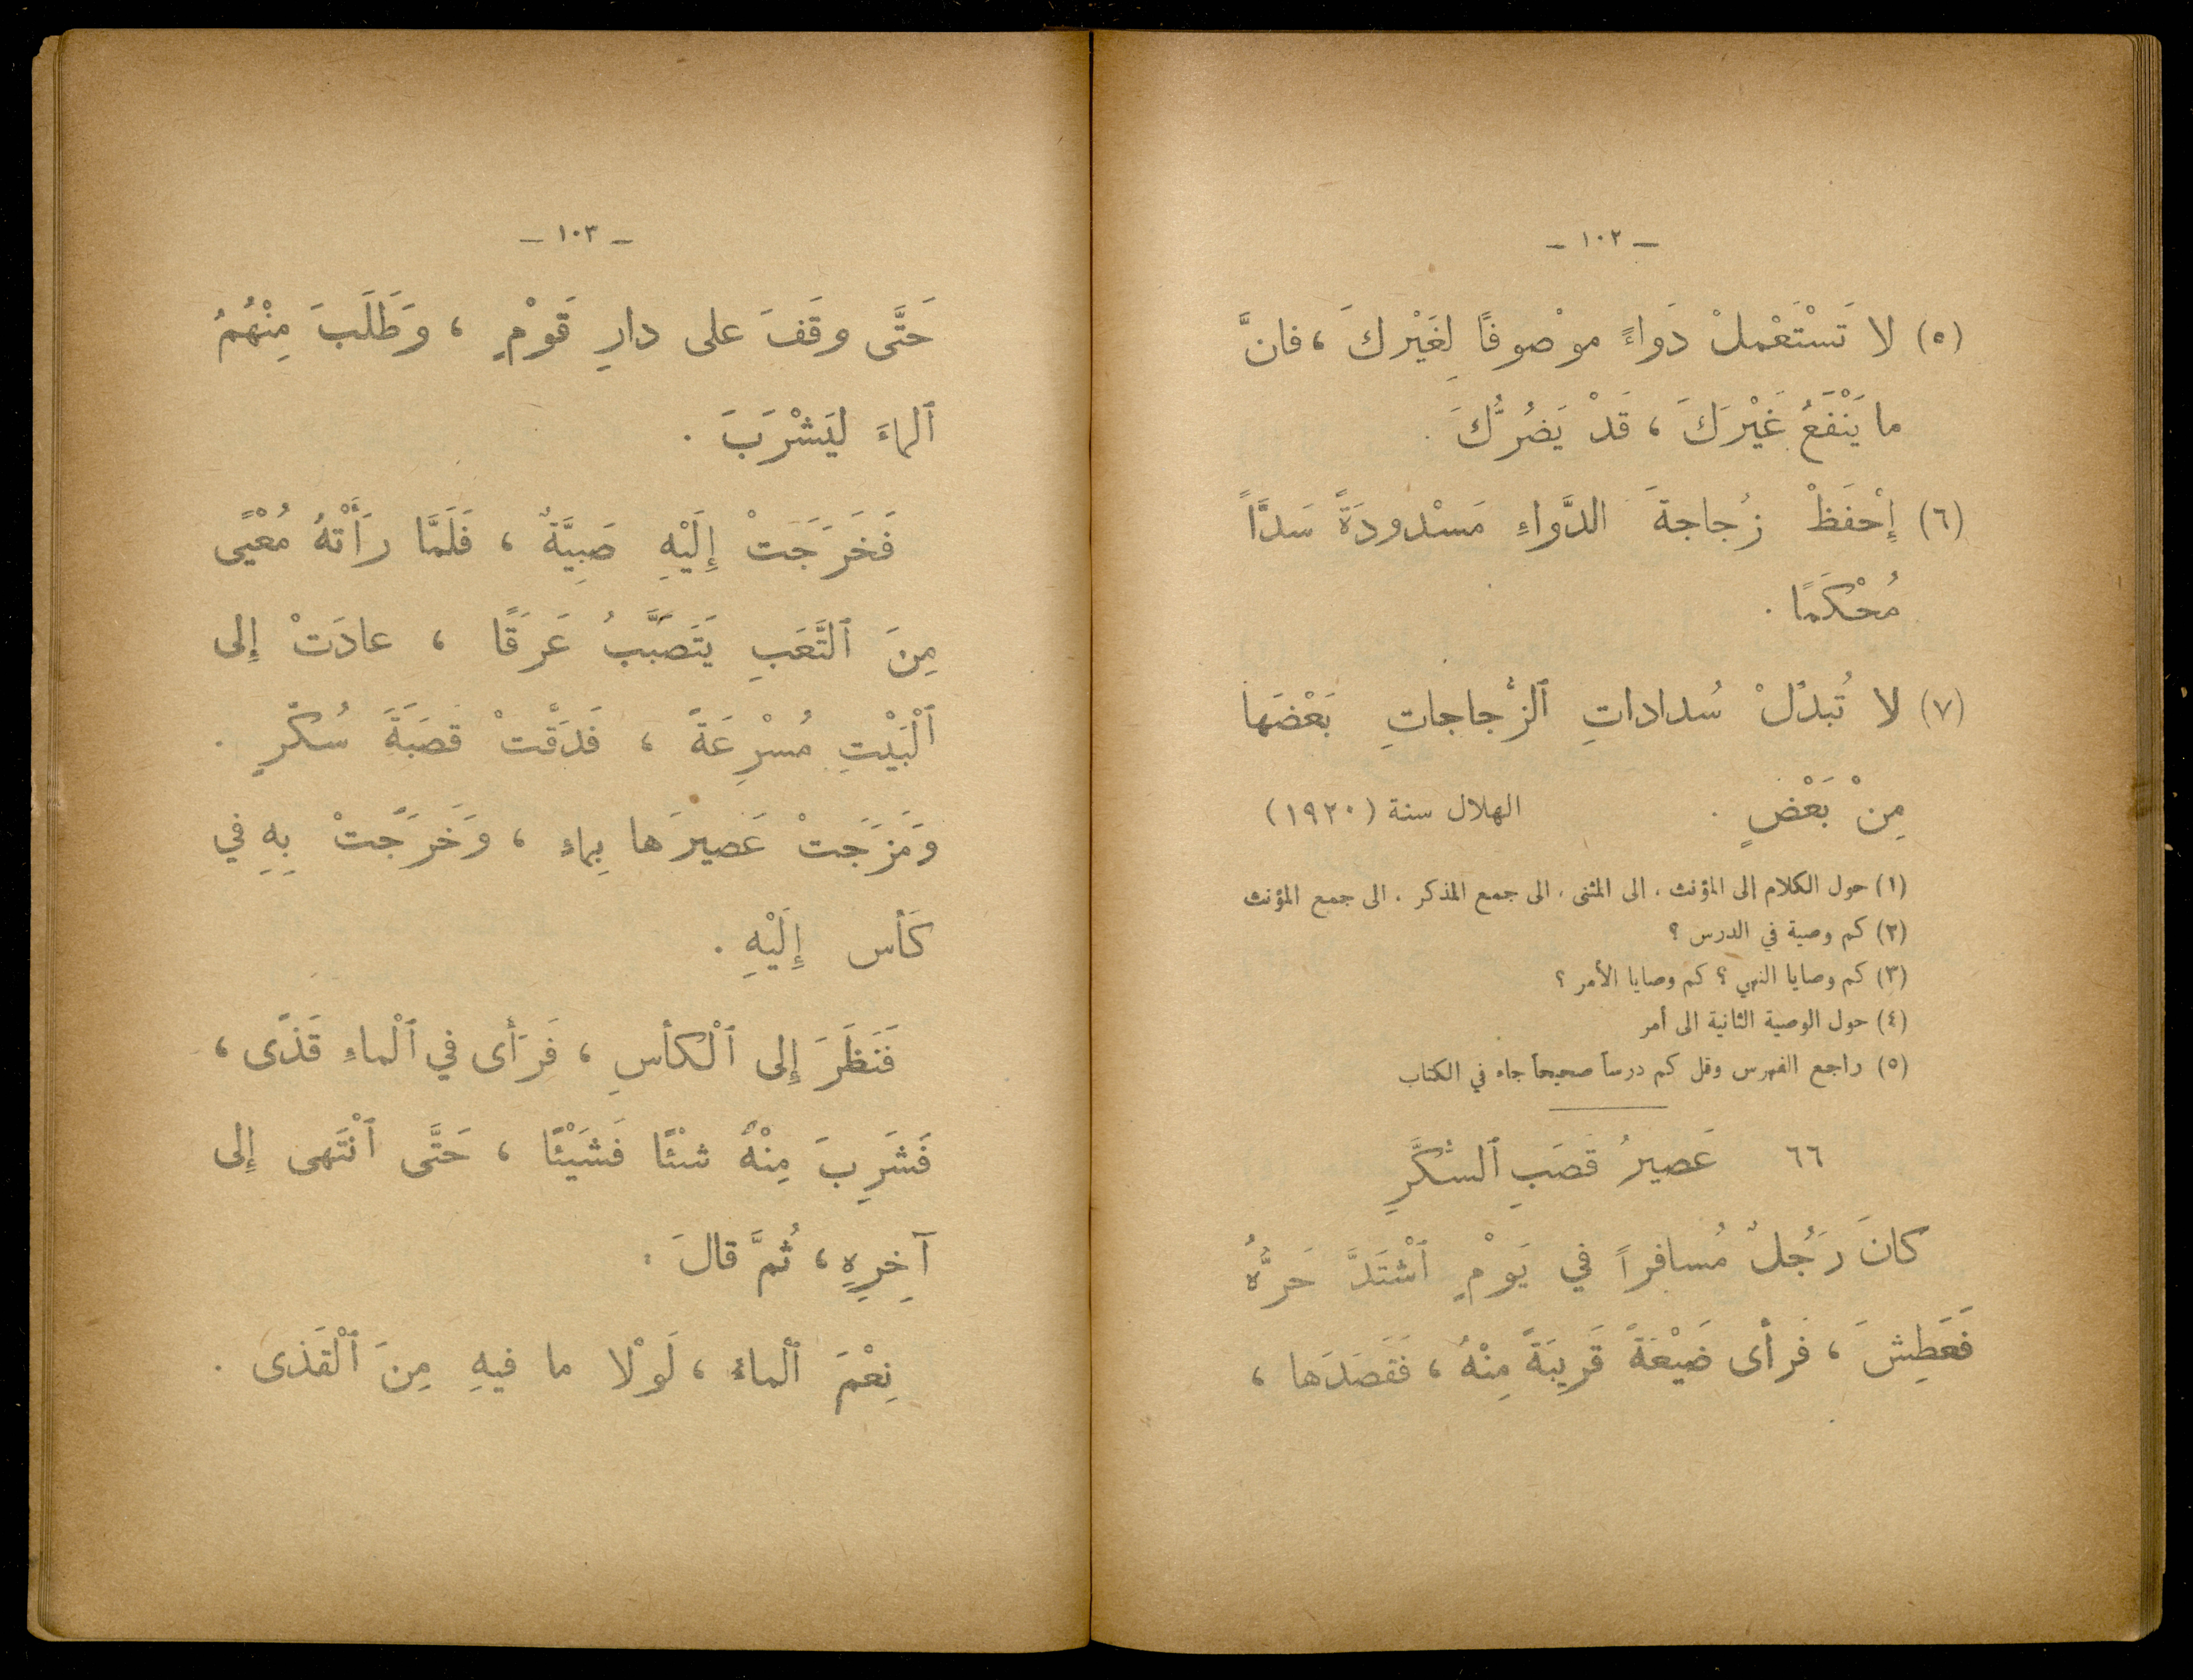 — ١٠٢ —
(٥) لا تَسْتَعْملْ دَواءً موْصوفًا لِغَيْرِكَ ، فانَّ
ما يَنْفَعُ غَيْرَكَ ، قَدْ يَضُرُّكَ .
(٦) إِحْفَظْ زُجاجةَ الدَّواءِ مَسْدودَةً سَدًّاً
مُحْكَمًا .
(٧) لا تُبدلْ سُداداتِ ٱلزُّجاجاتِ بَعْضَها
مِنْ بَعْضٍ . الهلال سنة (١٩٢٠)
(١) حول الكلام الى المؤنث ، الى المثنى ، الى جمع المذكر ، الى جمع المؤنث
(٢) كم وصية في الدرس ؟
(٣) كم وصايا النهي ؟ كم وصايا الأمر ؟
(٤) حول الوصية الثانية الى أمر
(٥) راجع الفهرس وقل كم درساً صحيحاً جاء في الكتاب
٦٦ عَصيرُ قَصَبِ ٱلسُّكَّرِ
كانَ رَجُلٌ مُسافراً في يَوْمٍ ٱشْتَدَّ حَرُّهُ
فَعَطِشَ ، فَرأى ضَيْعَةً قَريبَةً مِنْهُ ، فَقَصَدَها ،
— ١٠٣ —
حَتَّى وقَفَ على دارِ قَوْمٍ ، وَطَلَبَ مِنْهُمُ
ٱلماءَ ليَشْرَبَ .
فَخَرَجَتْ إِلَيْهِ صَبِيَّةٌ ، فَلَمَّا رَأَتْهُ مُعْيًى
مِنَ ٱلتَّعَبِ يَتَصَبَّبُ عَرَقًا ، عادَتْ إِلى
ٱلْبَيْتِ مُسْرِعَةً ، فَدَقَّتْ قصَبَةَ سُكّرٍ .
وَمَزَجَتْ عَصيرَها بِماءٍ ، وَخَرَجتْ بِهِ في
كَأْس إِلَيْهِ .
فَنَظَرَ إِلى ٱلْكأسِ ، فَرَأى في ٱلْماءِ قَذًى ،
فَشَرِبَ مِنْهُ شيْئًا فَشَيْئًا ، حَتَّى ٱنْتَهى إِلى
آخِرِهِ ، ثُمَّ قالَ :
نِعْمَ ٱلْماءُ ، لَوْلا ما فيهِ مِنَ ٱلْقَذى .